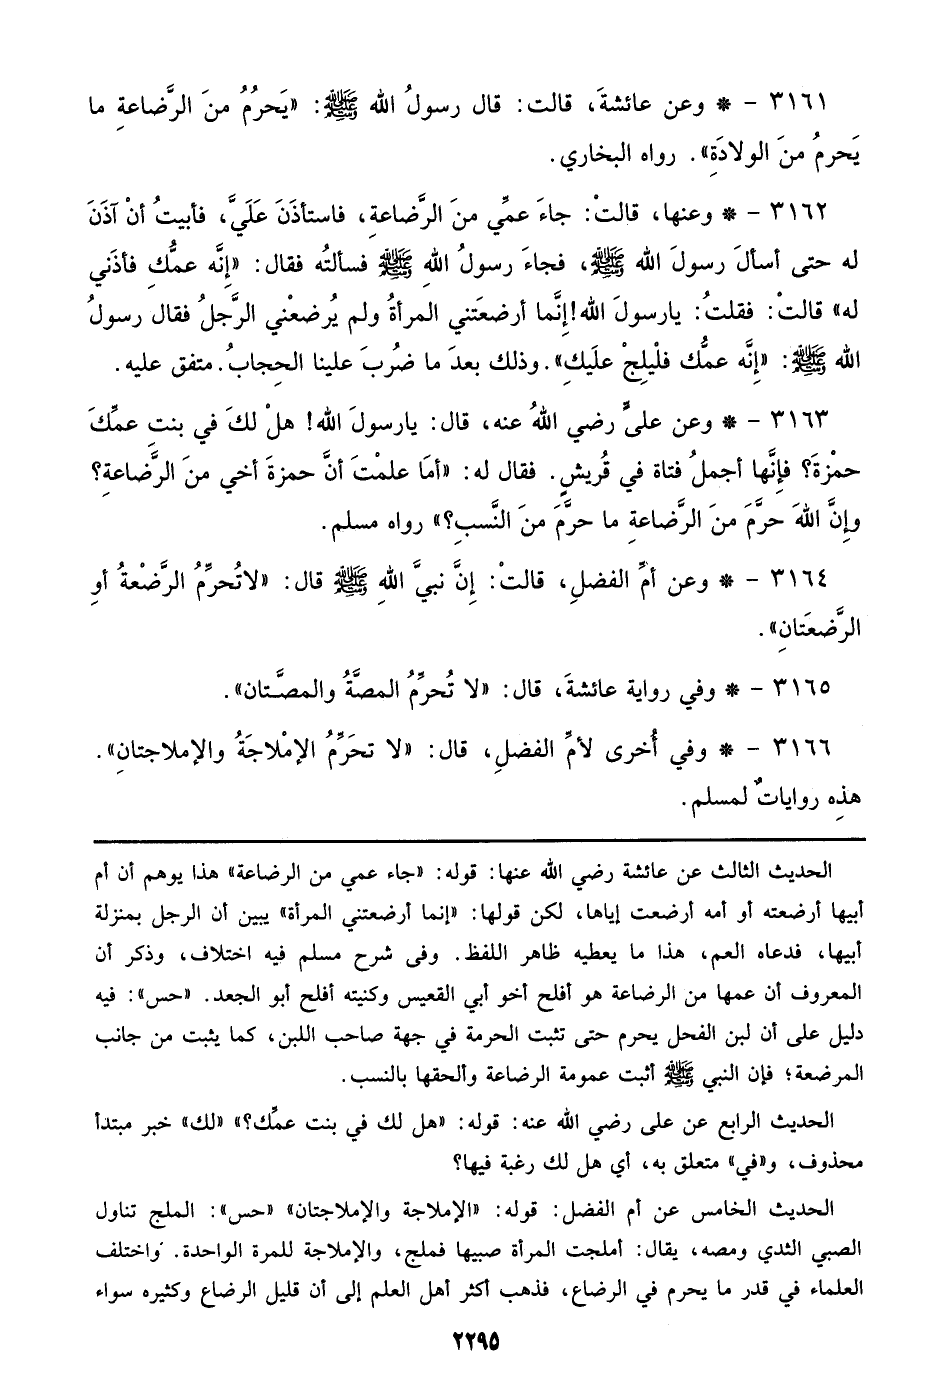 ٣١٦١ – * وعن عائشةَ، قالت: قال رسولُ الله ﷺ: «يَحرُمُ منَ الرَّضاعةِ ما
يَحرمُ منَ الولادَةِ». رواه البخاري.
٣١٦٢ – * وعنها، قالتْ: جاءَ عمِّي منَ الرَّضاعة، فاستأذَنَ عَلَيَّ، فأبيتُ أنْ آذَنَ
له حتى أسألَ رسولَ الله ﷺ، فجاءَ رسولُ اللهِ ﷺ فسألتُه فقال: «إنَّه عمُّكِ فأذَني
له» قالتْ: فقلتُ: يارسولَ الله!إنَّما أرضعَتني المرأةُ ولم يُرضعْني الرَّجلُ فقال رسولُ
الله ﷺ: «إنَّه عمُّك فلْيلِجْ علَيكِ».وذلك بعدَ ما ضُربَ علينا الحِجابُ.متفق عليه.
٣١٦٣ – * وعن عليٍّ رضي اللهُ عنه، قال: يارسولَ الله! هلْ لكَ في بنتِ عمِّكَ
حمْزةَ؟ فإنَّها أجملُ فتاة في قُريشٍ. فقال له: «أمَا علمْتَ أنَّ حمزةَ أخي منَ الرَّضاعة؟
وإنَّ اللهَ حرَّمَ منَ الرَّضاعةِ ما حرَّمَ منَ النَّسبِ؟» رواه مسلم.
٣١٦٤ – * وعن أمِّ الفضلِ، قالتْ: إنَّ نبيَّ اللهِ ﷺ قال: «لاتُحرِّمُ الرَّضْعةُ أوِ
الرَّضعَتانِ».
٣١٦٥ – * وفي رواية عائشةَ، قال: «لا تُحرِّمُ المصَّةُ والمصَّتان».
٣١٦٦ – * وفي أُخرى لأمِّ الفضلِ، قال: «لا تحَرِّمُ الإمْلاجَةُ والإملاجتانِ».
هذِه رواياتٌ لمسلم.
الحديث الثالث عن عائشة رضي الله عنها: قوله: «جاء عمي من الرضاعة» هذا يوهم أن أم
أبيها أرضعته أو أمه أرضعت إياها، لكن قولها: «إنما أرضعتني المرأة» يبين أن الرجل بمنزلة
أبيها، فدعاه العم، هذا ما يعطيه ظاهر اللفظ. وفى شرح مسلم فيه اختلاف، وذكر أن
المعروف أن عمها من الرضاعة هو أفلح أخو أبي القعيس وكنيته أفلح أبو الجعد. «حس»: فيه
دليل على أن لبن الفحل يحرم حتى تثبت الحرمة في جهة صاحب اللبن، كما يثبت من جانب
المرضعة؛ فإن النبي ﷺ أثبت عمومة الرضاعة وألحقها بالنسب.
الحديث الرابع عن على رضي الله عنه: قوله: «هل لك في بنت عمِّك؟» «لك» خبر مبتدأ
محذوف، و«في» متعلق به، أي هل لك رغبة فيها؟
الحديث الخامس عن أم الفضل: قوله: «الإملاجة والإملاجتان» «حس»: الملج تناول
الصبي الثدي ومصه، يقال: أملجت المرأة صبيها فملج، والإملاجة للمرة الواحدة. واختلف
العلماء في قدر ما يحرم في الرضاع، فذهب أكثر أهل العلم إلى أن قليل الرضاع وكثيره سواء
٢٢٩٥